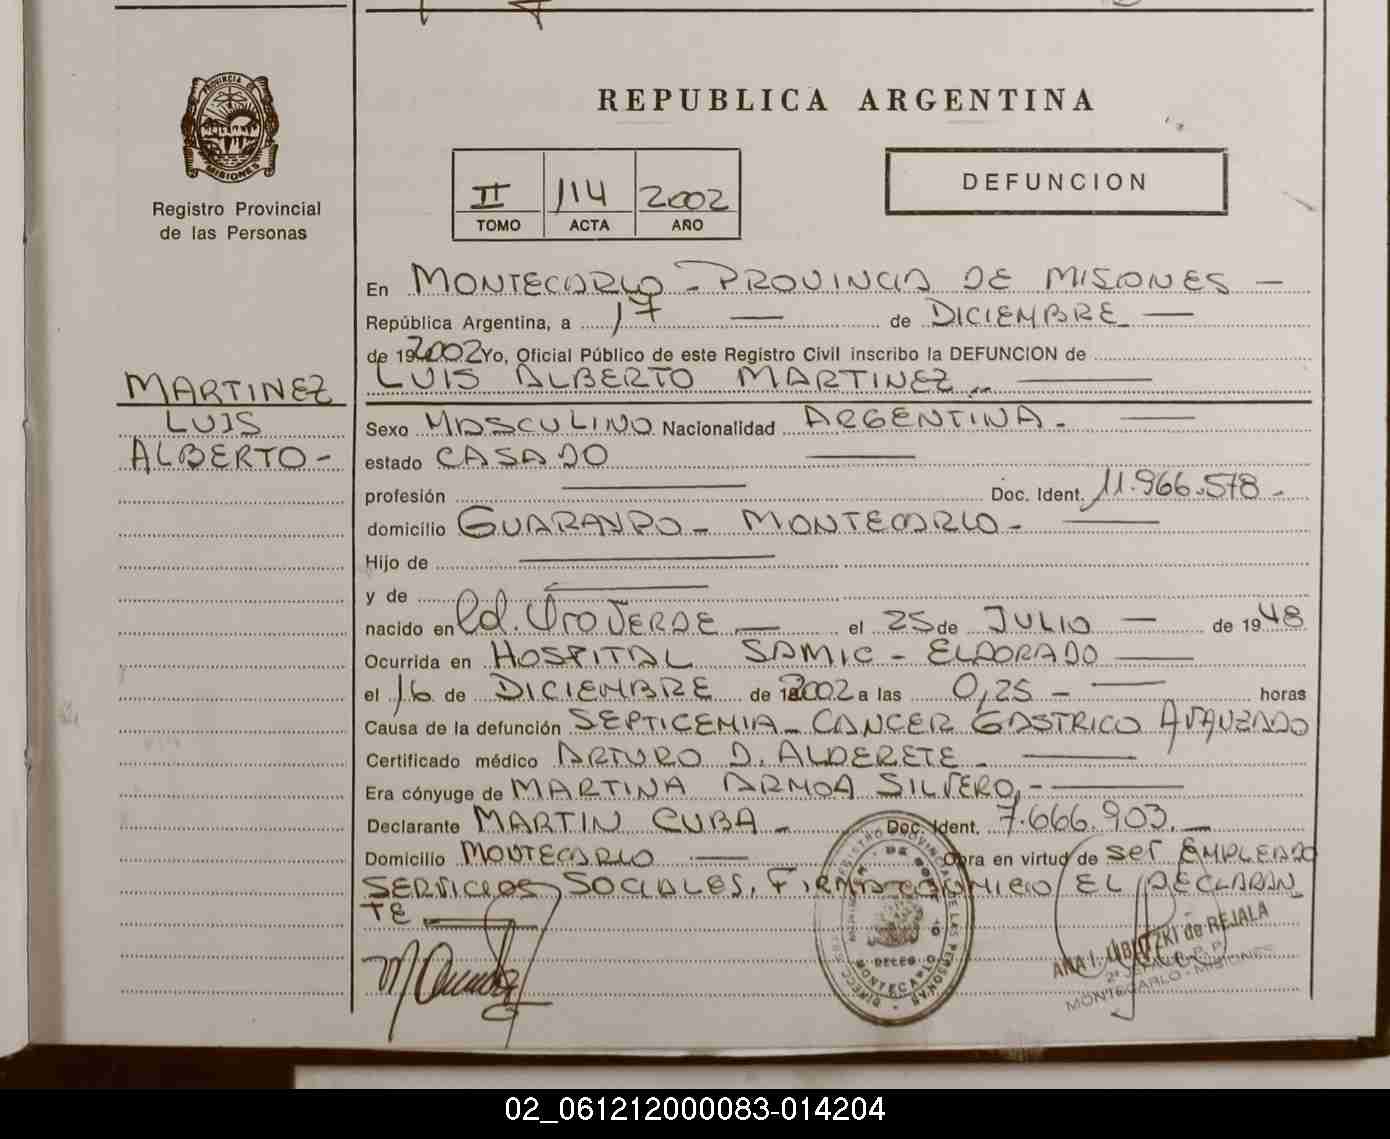 PROVINCIA DE
MISIONES
Registro Provincial
de las Personas
REPUBLICA ARGENTINA
II 114 2002
TOMO ACTA AÑO
DEFUNCION
En MONTECARLO - PROVINCIA DE MISIONES —
República Argentina, a 17 — de DICIEMBRE —
de 192002 Yo, Oficial Público de este Registro Civil inscribo la DEFUNCION de
LUIS ALBERTO MARTINEZ.. —
MARTINEZ
LUIS
ALBERTO -
Sexo MASCULINO Nacionalidad ARGENTINA. —
estado CASADO —
profesión — Doc. Ident. 11.966.578 -
domicilio GUARAYPO - MONTECARLO - —
Hijo de —
y de —
nacido en Cd. Oro VERDE — el 25 de JULIO — de 1948
Ocurrida en HOSPITAL SAMIC - ELDORADO —
el 16 de DICIEMBRE de 2002 a las 0,25 - — horas
Causa de la defunción SEPTICEMIA - CANCER GASTRICO AVANZADO
Certificado médico ARTURO D. ALDERETE - —
Era cónyuge de MARTINA ARMOA SILVERO, - —
Declarante MARTIN CUBA - Doc. Ident. 7.666.903. —
Domicilio MONTECARLO — Obra en virtud de ser EMPLEADO
SERVICIOS SOCIALES, FIRMA CONMIGO EL DECLARAN
TE —
ANA I. LIBUTZKI de REJALA
MONTECARLO - MISIONES
DIREC. REGISTRO PROVINCIAL DE LAS PERSONAS
DELEG.
MONTECARLO
02_061212000083-014204